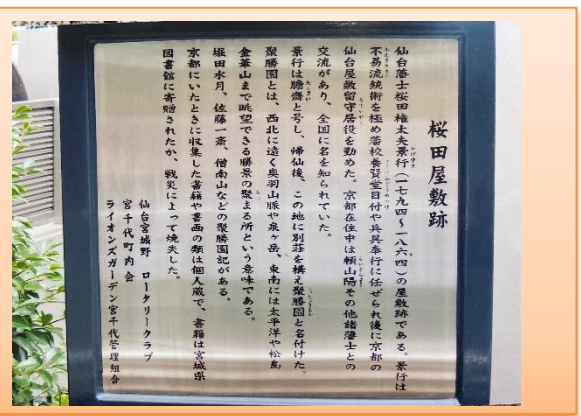 桜田屋敷跡
仙台藩士桜田権太夫景行(一七九四〜一八六四)の屋敷跡である。景行は
不易流銃術を極め藩校養賢堂目付や兵具奉行に任ぜられ後に京都の
仙台屋敷留守居役を勤めた。京都在住中は頼山陽その他諸藩士との
交流があり、全国に名を知られていた。
景行は贍斎と号し、帰仙後、この地に別荘を構え聚勝園と名付けた。
聚勝園とは、西北に遠く奥羽山脈や泉ヶ岳、東南には太平洋や松島
金華山まで眺望できる勝景の聚まる所という意味である。
堀田水月、佐藤一斎、僧南山などの聚勝園記がある。
京都にいたときに収集した書籍や書画の類は個人蔵で、書籍は宮城県
図書館に寄贈されたが、戦災によって焼失した。
仙台宮城野 ロータリークラブ
宮千代町内会
ライオンズガーデン宮千代管理組合